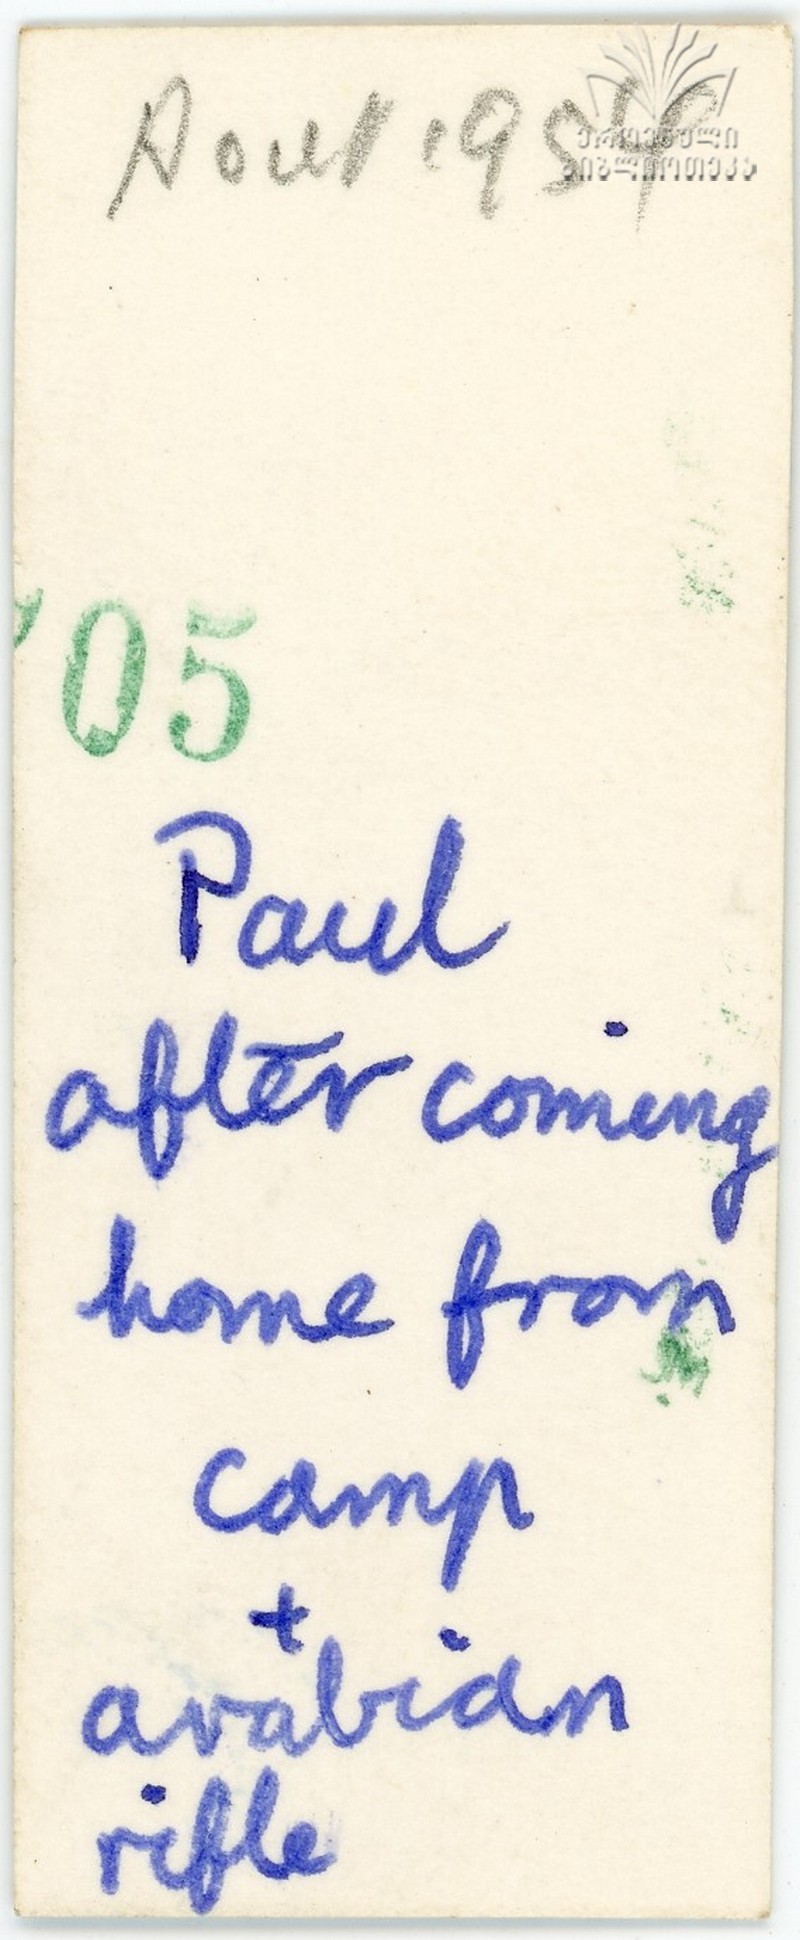 Aout 1954
ეროვნული
ბიბლიოთეკა
05
Paul
after coming
home from
camp
+
arabian
rifle